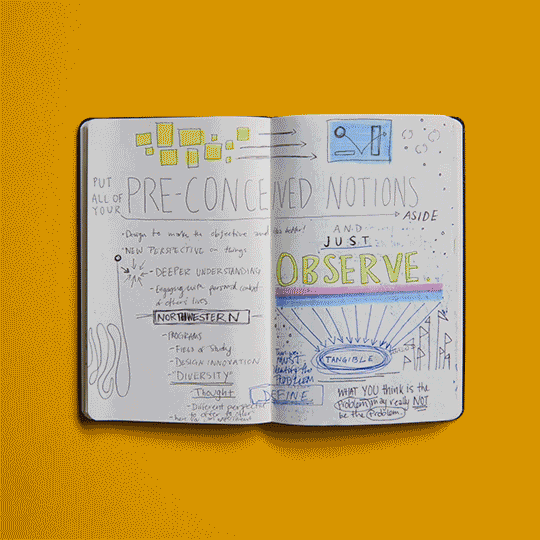 PUT
ALL OF
YOUR
PRE-CONCEIVED NOTIONS
ASIDE
•Design to make the objective and
•NEW PERSPECTIVE on things
•DEEPER UNDERSTANDING
•Engaging with personal context
of others lives
NORTHWESTERN
-PROGRAMS
-Field of Study
-DESIGN INNOVATION
-"DIVERSITY"
Thought
-Different perspective
AND
JUST
OBSERVE
TANGIBLE
MUST
PROBLEM
DEFINE
WHAT YOU think is the
Problem may really NOT
be the Problem.